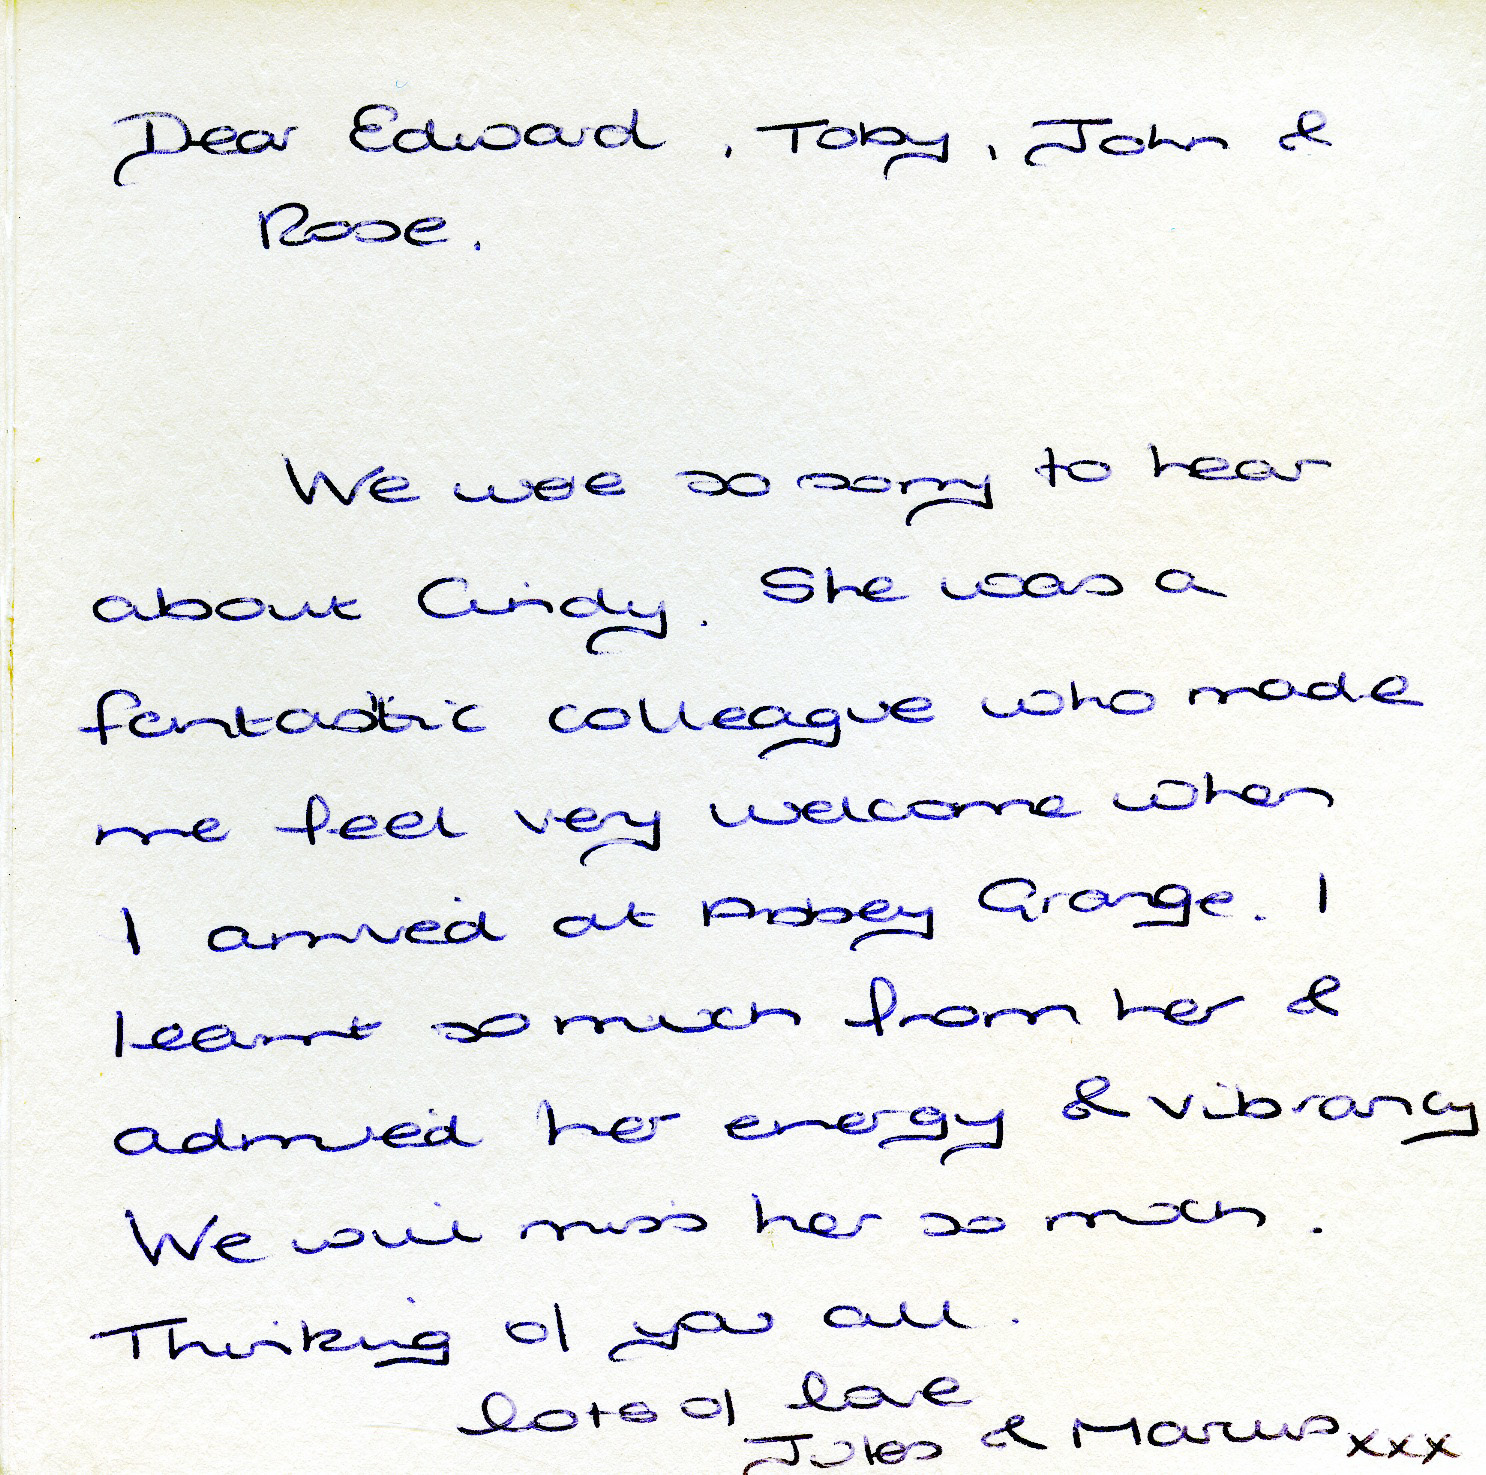 Dear Edward, Toby, John &
Rose.
We were so sorry to hear
about Cindy. She was a
fantastic colleague who made
me feel very welcome when
I arrived at Abbey Grange. I
learnt so much from her &
admired her energy & vibrancy
We will miss her so much.
Thinking of you all.
lots of love
Jules & Marcus xxx